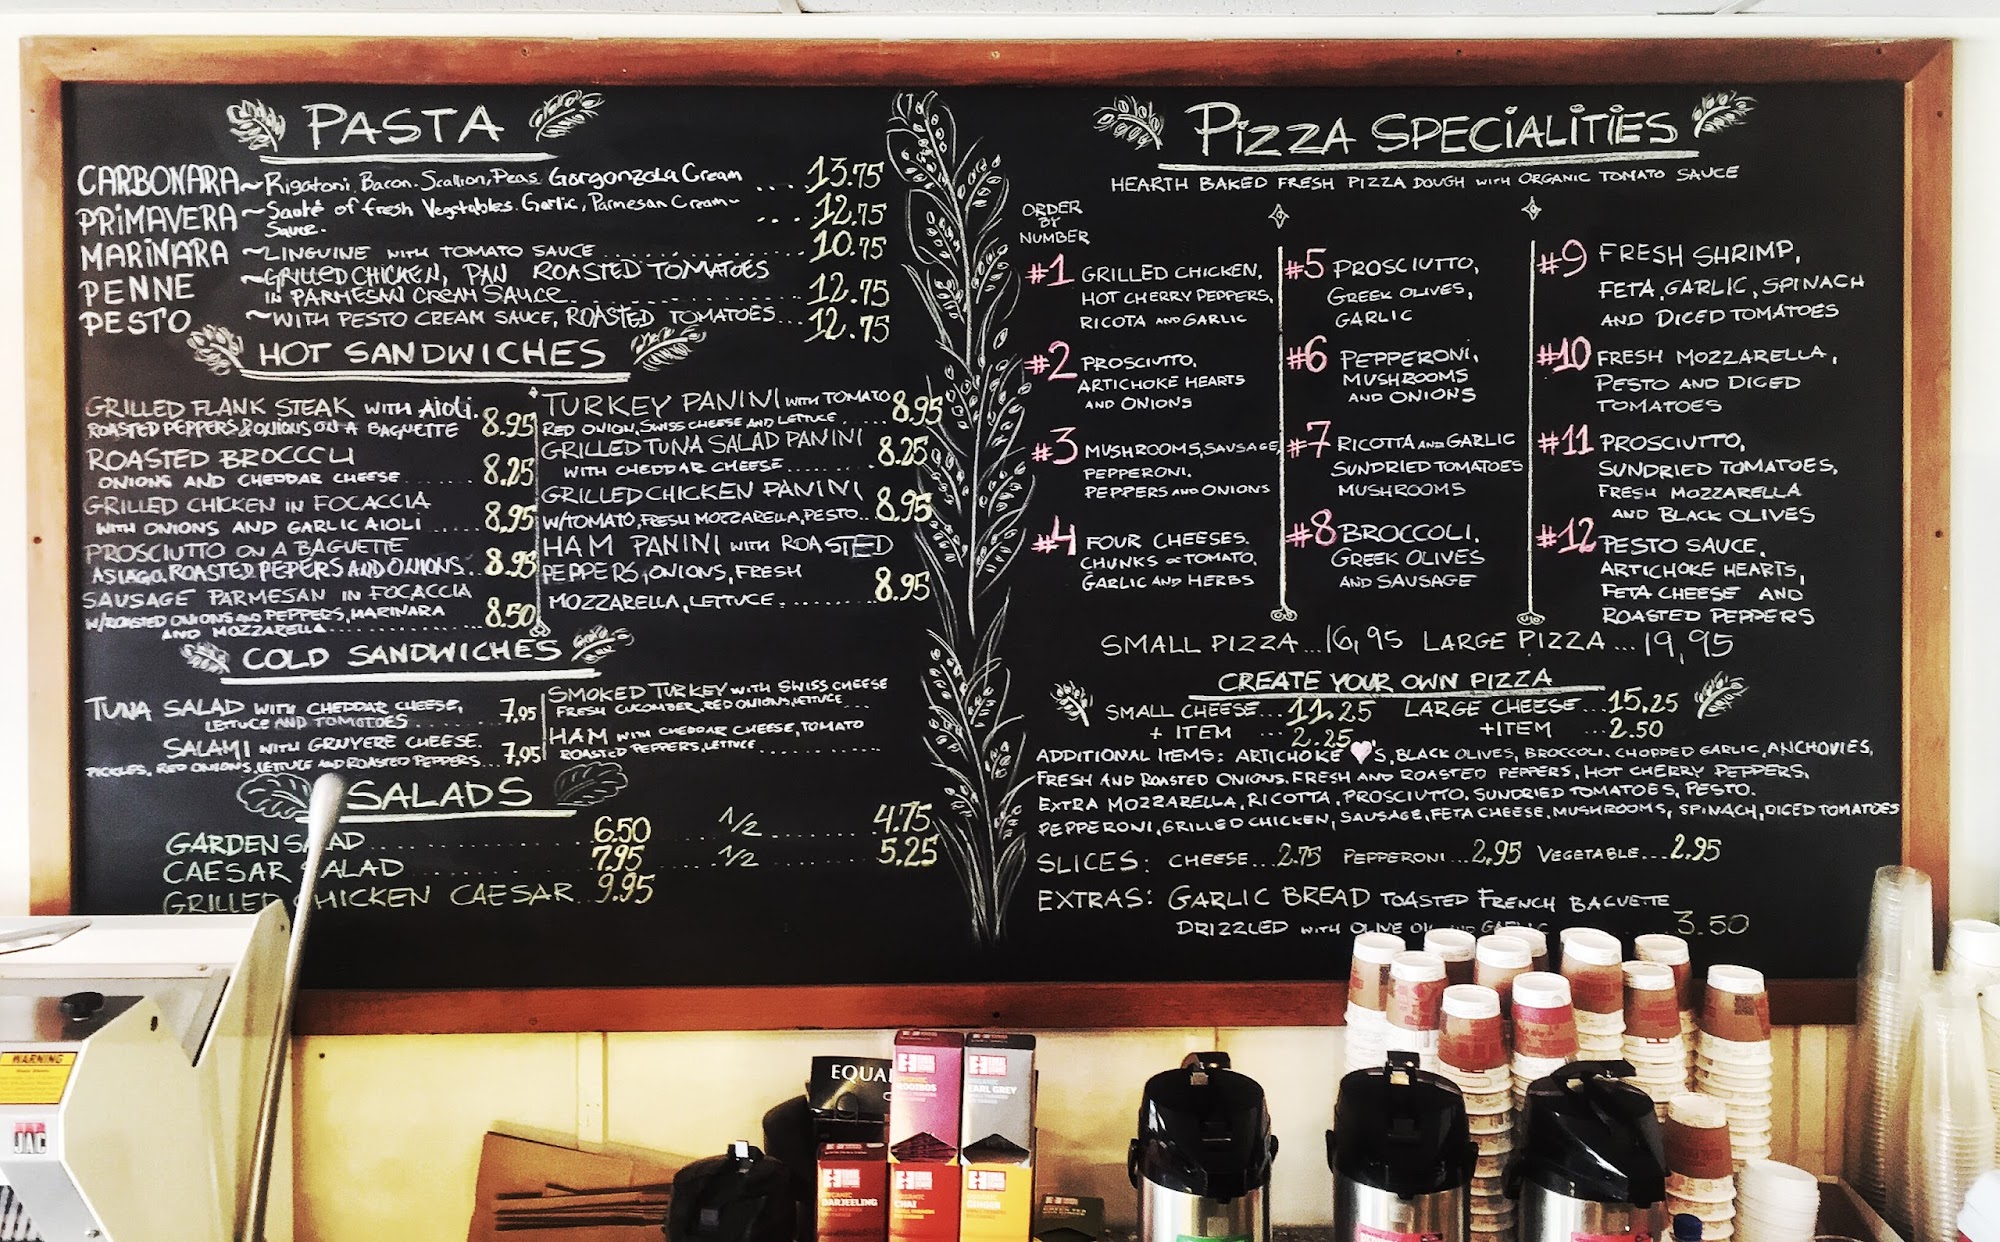 PASTA
CARBONARA ~ Rigatoni, Bacon, Scallion, Peas, Gorgonzola Cream .... 13.75
PRIMAVERA ~ Sauté of fresh Vegetables, Garlic, Parmesan Cream~ ... 12.75
Sauce.
MARINARA ~ LINGUINE WITH TOMATO SAUCE ............ 10.75
PENNE ~ GRILLED CHICKEN, PAN ROASTED TOMATOES
IN PARMESAN CREAM SAUCE ............ 12.75
PESTO ~ WITH PESTO CREAM SAUCE, ROASTED TOMATOES ... 12.75
HOT SANDWICHES
GRILLED FLANK STEAK WITH AIOLI.
ROASTED PEPPERS & ONIONS ON A BAGUETTE 8.95
ROASTED BROCCCLI
ONIONS AND CHEDDAR CHESSE ........ 8.25
GRILLED CHICKEN IN FOCACCIA
WITH ONIONS AND GARLIC AIOLI ..... 8.95
PROSCIUTTO ON A BAGUETTE
ASIAGO, ROASTED PEPERS AND ONIONS .. 8.95
SAUSAGE PARMESAN IN FOCACCIA
W/ROASTED ONIONS AND PEPPERS, MARINARA
AND MOZZARELLA ............ 8.50
TURKEY PANINI WITH TOMATO
RED ONION, SWISS CHEESE AND LETTUCE ... 8.95
GRILLED TUNA SALAD PANINI
WITH CHEDDAR CHEESE ......... 8.25
GRILLED CHICKEN PANINI
W/TOMATO, FRESH MOZZARELLA, PESTO .. 8.95
HAM PANINI WITH ROASTED
PEPPERS, ONIONS, FRESH
MOZZARELLA, LETTUCE ......... 8.95
COLD SANDWICHES
TUNA SALAD WITH CHEDDAR CHEESE,
LETTUCE AND TOMATOES ........ 7.95
SALAMI WITH GRUYERE CHEESE.
PICKLES, RED ONIONS, LETTUCE AND ROASTED PEPPERS ... 7.95
SMOKED TURKEY WITH SWISS CHEESE
FRESH CUCUMBER, RED ONIONS, LETTUCE ...
HAM WITH CHEDDAR CHEESE, TOMATO
ROASTED PEPPERS, LETTUCE ............
SALADS
GARDEN SALAD ............ 6.50 1/2 ............ 4.75
CAESAR SALAD ............ 7.95 1/2 ............ 5.25
GRILLED CHICKEN CAESAR .. 9.95
PIZZA SPECIALITIES
HEARTH BAKED FRESH PIZZA DOUGH WITH ORGANIC TOMATO SAUCE
ORDER
BY
NUMBER
#1 GRILLED CHICKEN,
HOT CHERRY PEPPERS,
RICOTA AND GARLIC
#2 PROSCIUTTO,
ARTICHOKE HEARTS
AND ONIONS
#3 MUSHROOMS, SAUSAGE,
PEPPERONI.
PEPPERS AND ONIONS
#4 FOUR CHEESES.
CHUNKS OF TOMATO,
GARLIC AND HERBS
#5 PROSCIUTTO,
GREEK OLIVES,
GARLIC
#6 PEPPERONI,
MUSHROOMS
AND ONIONS
#7 RICOTTA AND GARLIC
SUNDRIED TOMATOES
MUSHROOMS
#8 BROCCOLI,
GREEK OLIVES
AND SAUSAGE
#9 FRESH SHRIMP,
FETA, GARLIC, SPINACH
AND DICED TOMATOES
#10 FRESH MOZZARELLA,
PESTO AND DICED
TOMATOES
#11 PROSCIUTTO,
SUNDRIED TOMATOES,
FRESH MOZZARELLA
AND BLACK OLIVES
#12 PESTO SAUCE,
ARTICHOKE HEARTS,
FETA CHEESE AND
ROASTED PEPPERS
SMALL PIZZA ... 16,95 LARGE PIZZA ... 19,95
CREATE YOUR OWN PIZZA
SMALL CHEESE ... 11.25 LARGE CHEESE ... 15.25
+ ITEM ... 2.25 + ITEM ... 2.50
ADDITIONAL ITEMS: ARTICHOKE 🩷'S, BLACK OLIVES, BROCCOLI, CHOPPED GARLIC, ANCHOVIES,
FRESH AND ROASTED ONIONS. FRESH AND ROASTED PEPPERS, HOT CHERRY PEPPERS,
EXTRA MOZZARELLA, RICOTTA, PROSCIUTTO, SUNDRIED TOMATOES, PESTO.
PEPPERONI, GRILLED CHICKEN, SAUSAGE, FETA CHEESE, MUSHROOMS, SPINACH, DICED TOMATOES
SLICES: CHEESE ... 2.75 PEPPERONI ... 2,95 VEGETABLE ... 2.95
EXTRAS: GARLIC BREAD TOASTED FRENCH BAGUETTE
DRIZZLED WITH OLIVE OIL AND GARLIC ... 3.50
WARNING
JAC
EQUAL
ORGANIC
ROOIBOS
EARL GREY
ORGANIC
DARJEELING
ORGANIC
CHAI